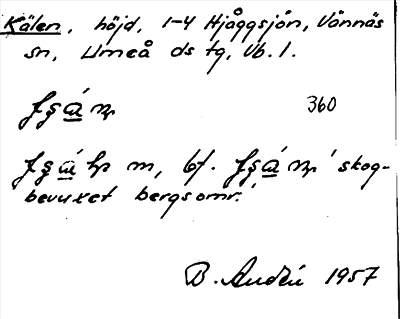 Kälen, höjd, 1-4 Hjåggsjön, Vännäs
sn, Umeå ds tg, Vb. l.
360
m, bf. 'skog-
bevuxet bergsomr.'
B. Audén 1957